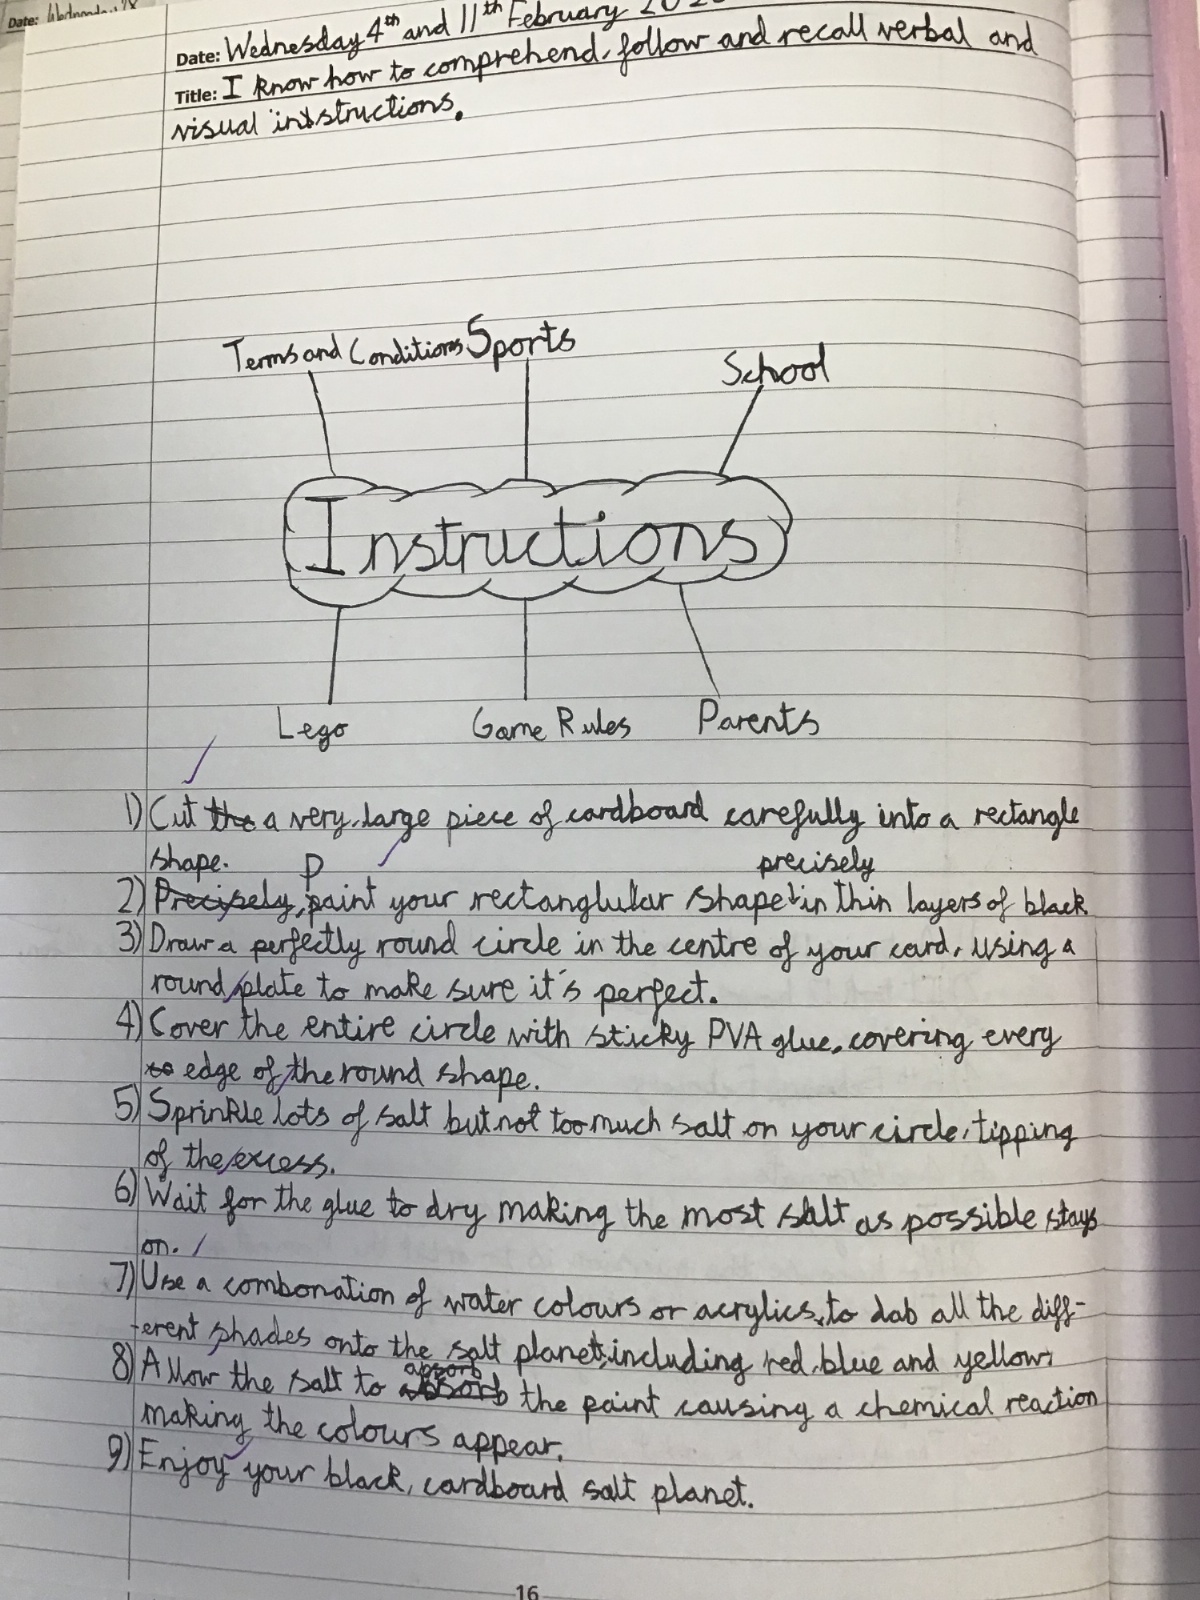 Date:
Date: Wednesday 4th and 11th February
Title: I know how to comprehend, follow and recall verbal and
visual instructions.
Terms and Conditions Sports
School
Instructions
Lego Game Rules Parents
1) Cut the a very, large piece of cardboard carefully into a rectangle
shape.
P precisely
2) Precisely, paint your rectanglular shape in thin layers of black
3) Draw a perfectly round circle in the centre of your card, using a
round plate to make sure it's perfect.
4) Cover the entire circle with sticky PVA glue, covering every
to edge of the round shape.
5) Sprinkle lots of salt but not too much salt on your circle, tipping
of the excess.
6) Wait for the glue to dry making the most salt as possible stays
on.
7) Use a combonation of water colours or acrylics, to dab all the diff-
-erent shades onto the salt planet, including red, blue and yellow.
absorb
8) Allow the salt to absorb the paint causing a chemical reaction
making the colours appear.
9) Enjoy your black, cardboard salt planet.
16